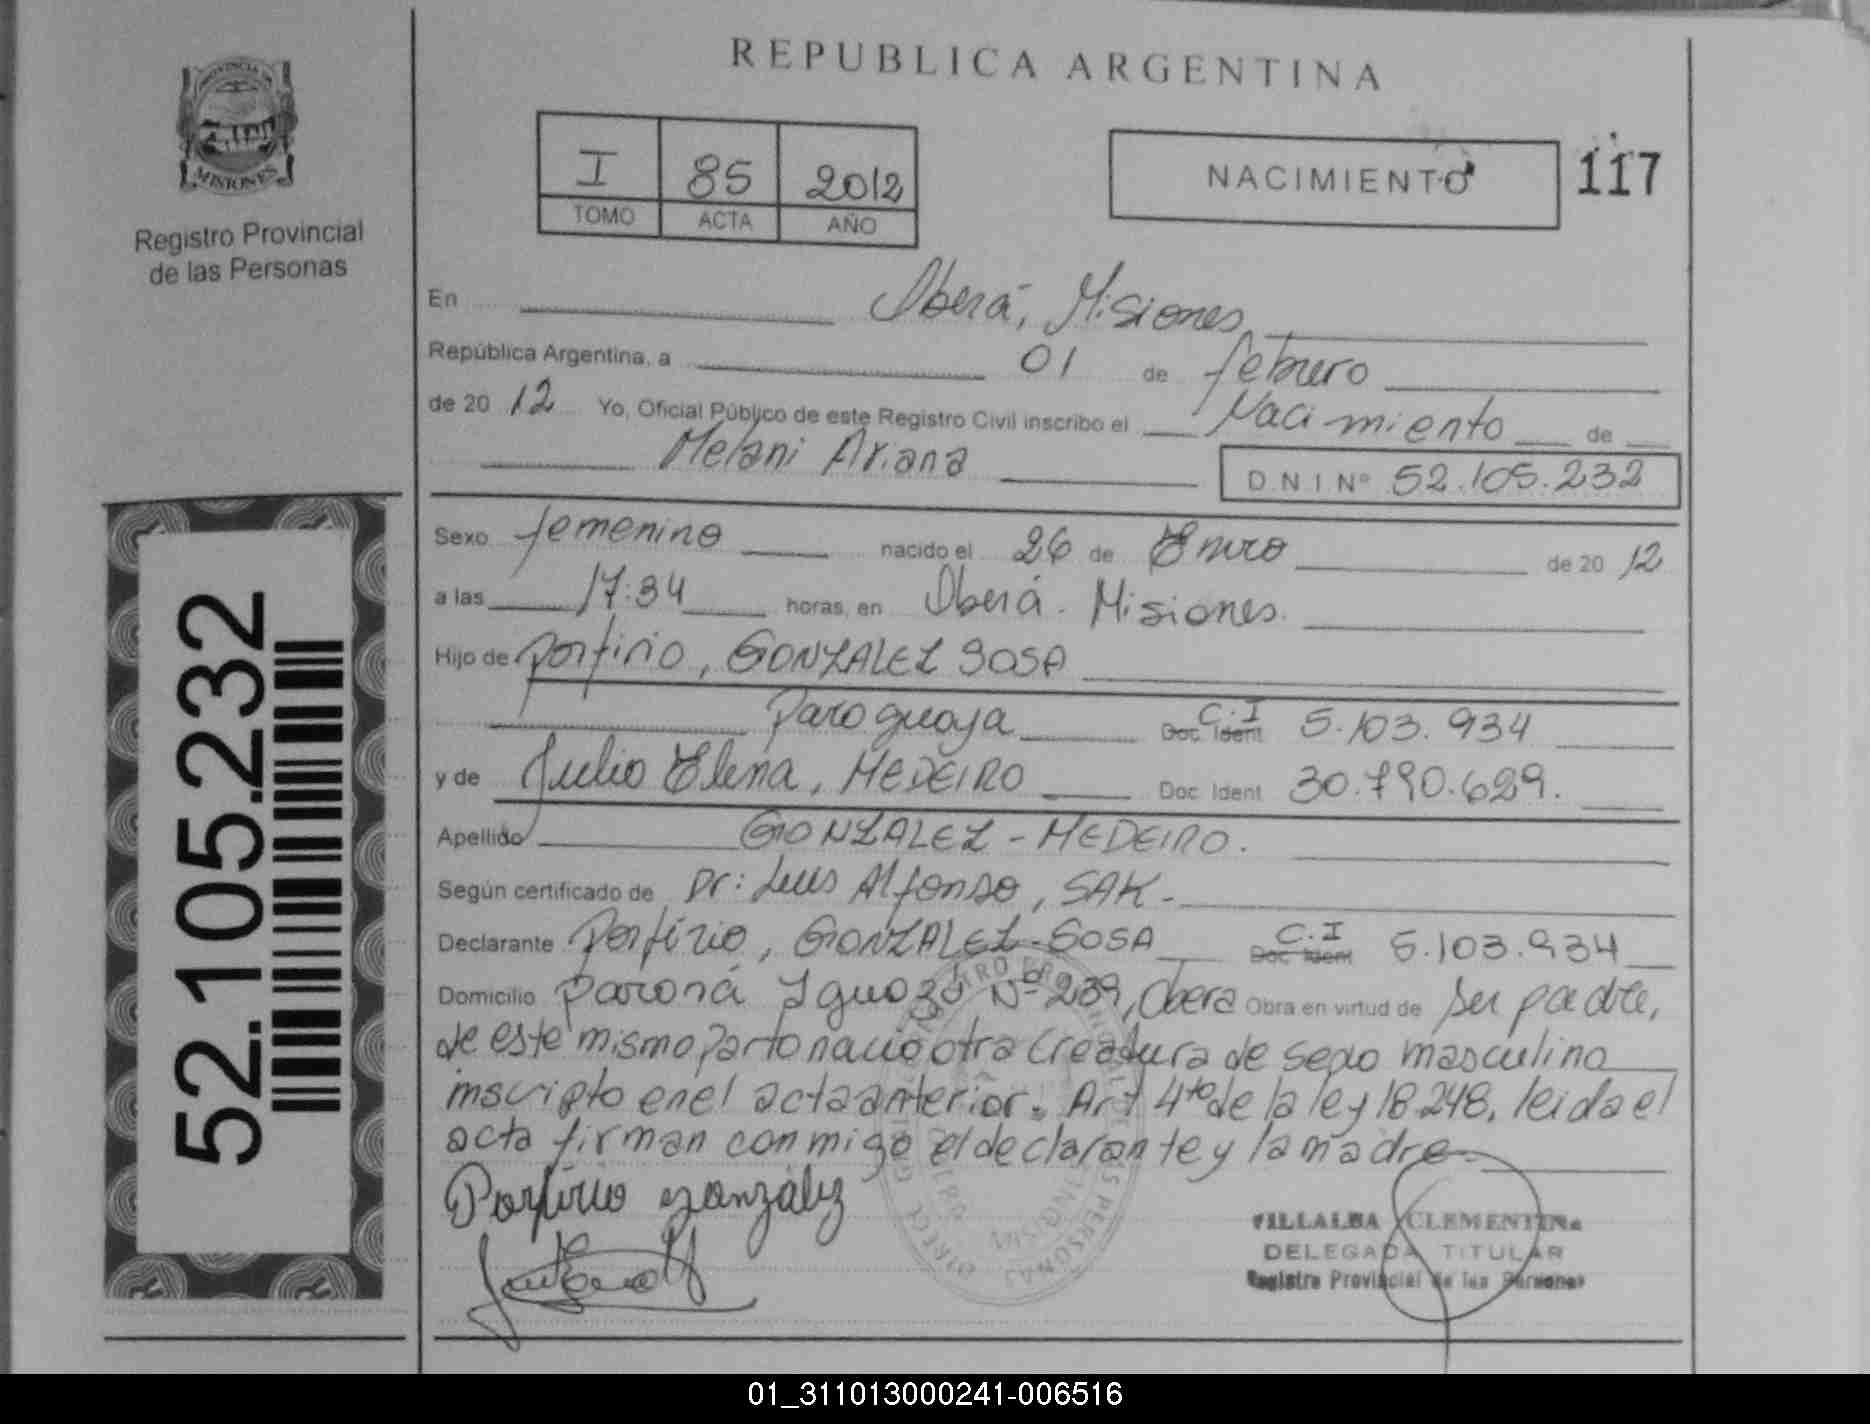 REPUBLICA ARGENTINA
PROVINCIA DE
MISIONES
Registro Provincial
de las Personas
I 85 2012
TOMO ACTA AÑO
NACIMIENTO 117
En Oberá, Misiones
República Argentina, a 01 de febrero
de 2012 Yo, Oficial Público de este Registro Civil inscribo el Nacimiento de
Melani Ariana D.N.I Nº 52.105.232
Sexo femenino nacido el 26 de Enero de 2012
a las 17:34 horas, en Oberá. Misiones.
Hijo de Porfirio, GONZALEZ SOSA
Paraguaya C.I Doc Ident 5.103.934
y de Julia Elena, MEDEIRO Doc Ident 30.790.629.
Apellido GONZALEZ - MEDEIRO.
Según certificado de Dr: Luis Alfonso, SAK-
Declarante Porfirio, GONZALEZ-SOSA C.I Doc Ident 5.103.934
Domicilio Paraná Iguazú Nº 239, Obera Obra en virtud de ser padre,
de este mismo parto nacio otra creadura de sexo masculino
inscripto en el acta anterior. Art 4to de la ley 18.248, leida el
acta firman conmigo el declarante y la madre-
Porfirio gonzález
VILLALBA CLEMENTINA
DELEGADA TITULAR
Registro Provincial de las Personas
52.105.232
01_311013000241-006516